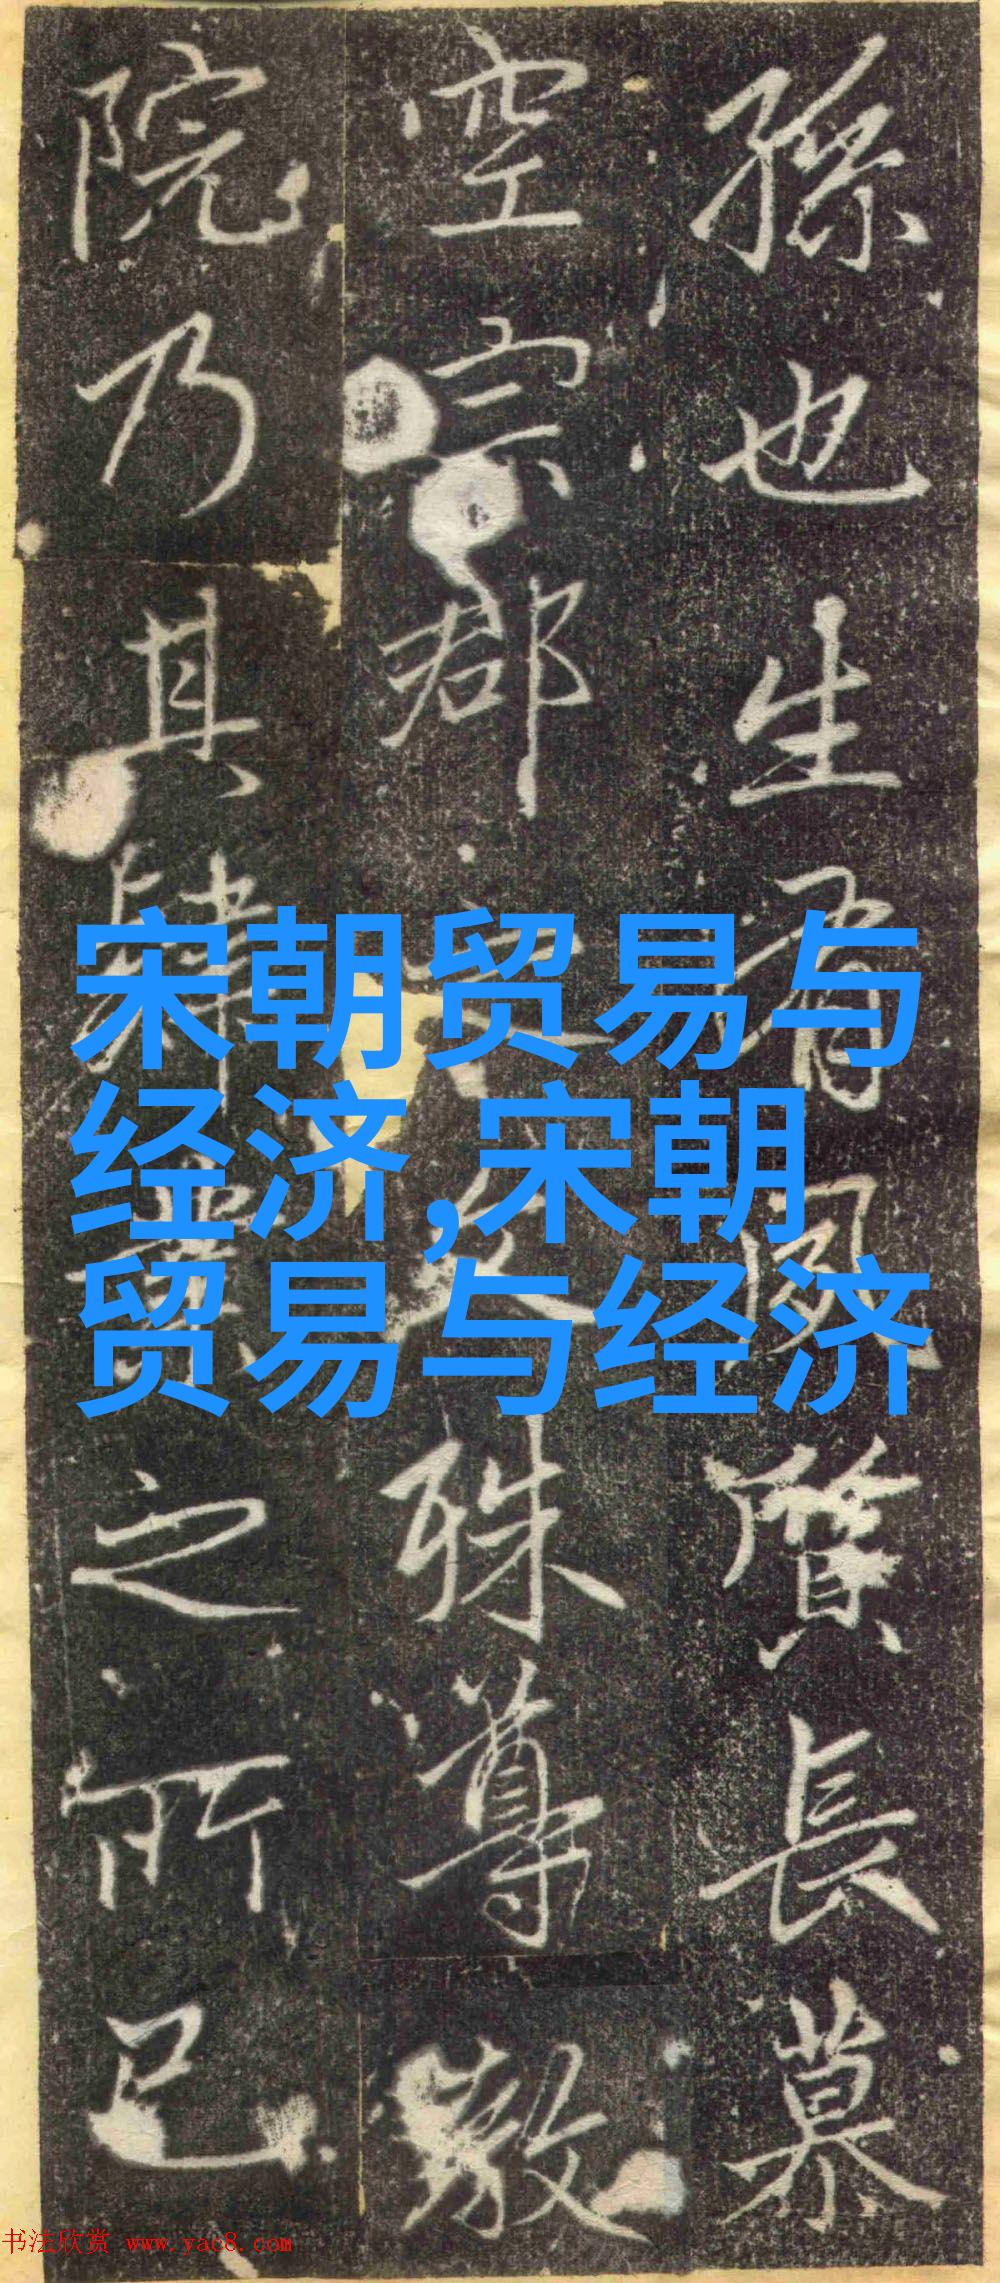 孫也生有夙質長慕
空宗郡之文殊尊
院乃其肆業之所已
宋朝贸易与
经济,宋朝
贸易与经济
书法欣赏 www.yac8.com